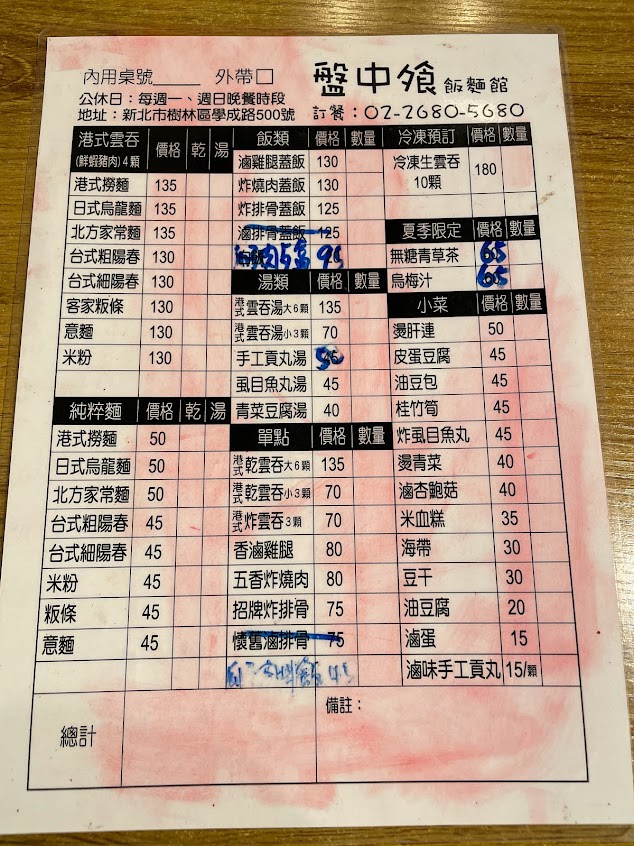 內用桌號_____ 外帶□
盤中飧 飯麵館
公休日：每週一、週日晚餐時段
地址：新北市樹林區學成路500號
訂餐：02-2680-5680
港式雲吞 (鮮蝦豬肉) 4顆 價格 乾 湯
港式撈麵 135
日式烏龍麵 135
北方家常麵 135
台式粗陽春 130
台式細陽春 130
客家粄條 130
意麵 130
米粉 130
純粹麵 價格 乾 湯
港式撈麵 50
日式烏龍麵 50
北方家常麵 50
台式粗陽春 45
台式細陽春 45
米粉 45
粄條 45
意麵 45
飯類 價格 數量
滷雞腿蓋飯 130
炸燒肉蓋飯 130
炸排骨蓋飯 125
滷排骨蓋飯 125
湯類 價格 數量
港式雲吞湯大6顆 135
港式雲吞湯小3顆 70
手工貢丸湯 50
虱目魚丸湯 45
青菜豆腐湯 40
單點 價格 數量
港式乾雲吞大6顆 135
港式乾雲吞小3顆 70
港式炸雲吞3顆 70
香滷雞腿 80
五香炸燒肉 80
招牌炸排骨 75
懷舊滷排骨 75
冷凍預訂 價格 數量
冷凍生雲吞 180
10顆
夏季限定 價格 數量
無糖青草茶 65
烏梅汁 65
小菜 價格 數量
燙肝連 50
皮蛋豆腐 45
油豆包 45
桂竹筍 45
炸虱目魚丸 45
燙青菜 40
滷杏鮑菇 40
米血糕 35
海帶 30
豆干 30
油豆腐 20
滷蛋 15
滷味手工貢丸 15/顆
總計
備註：